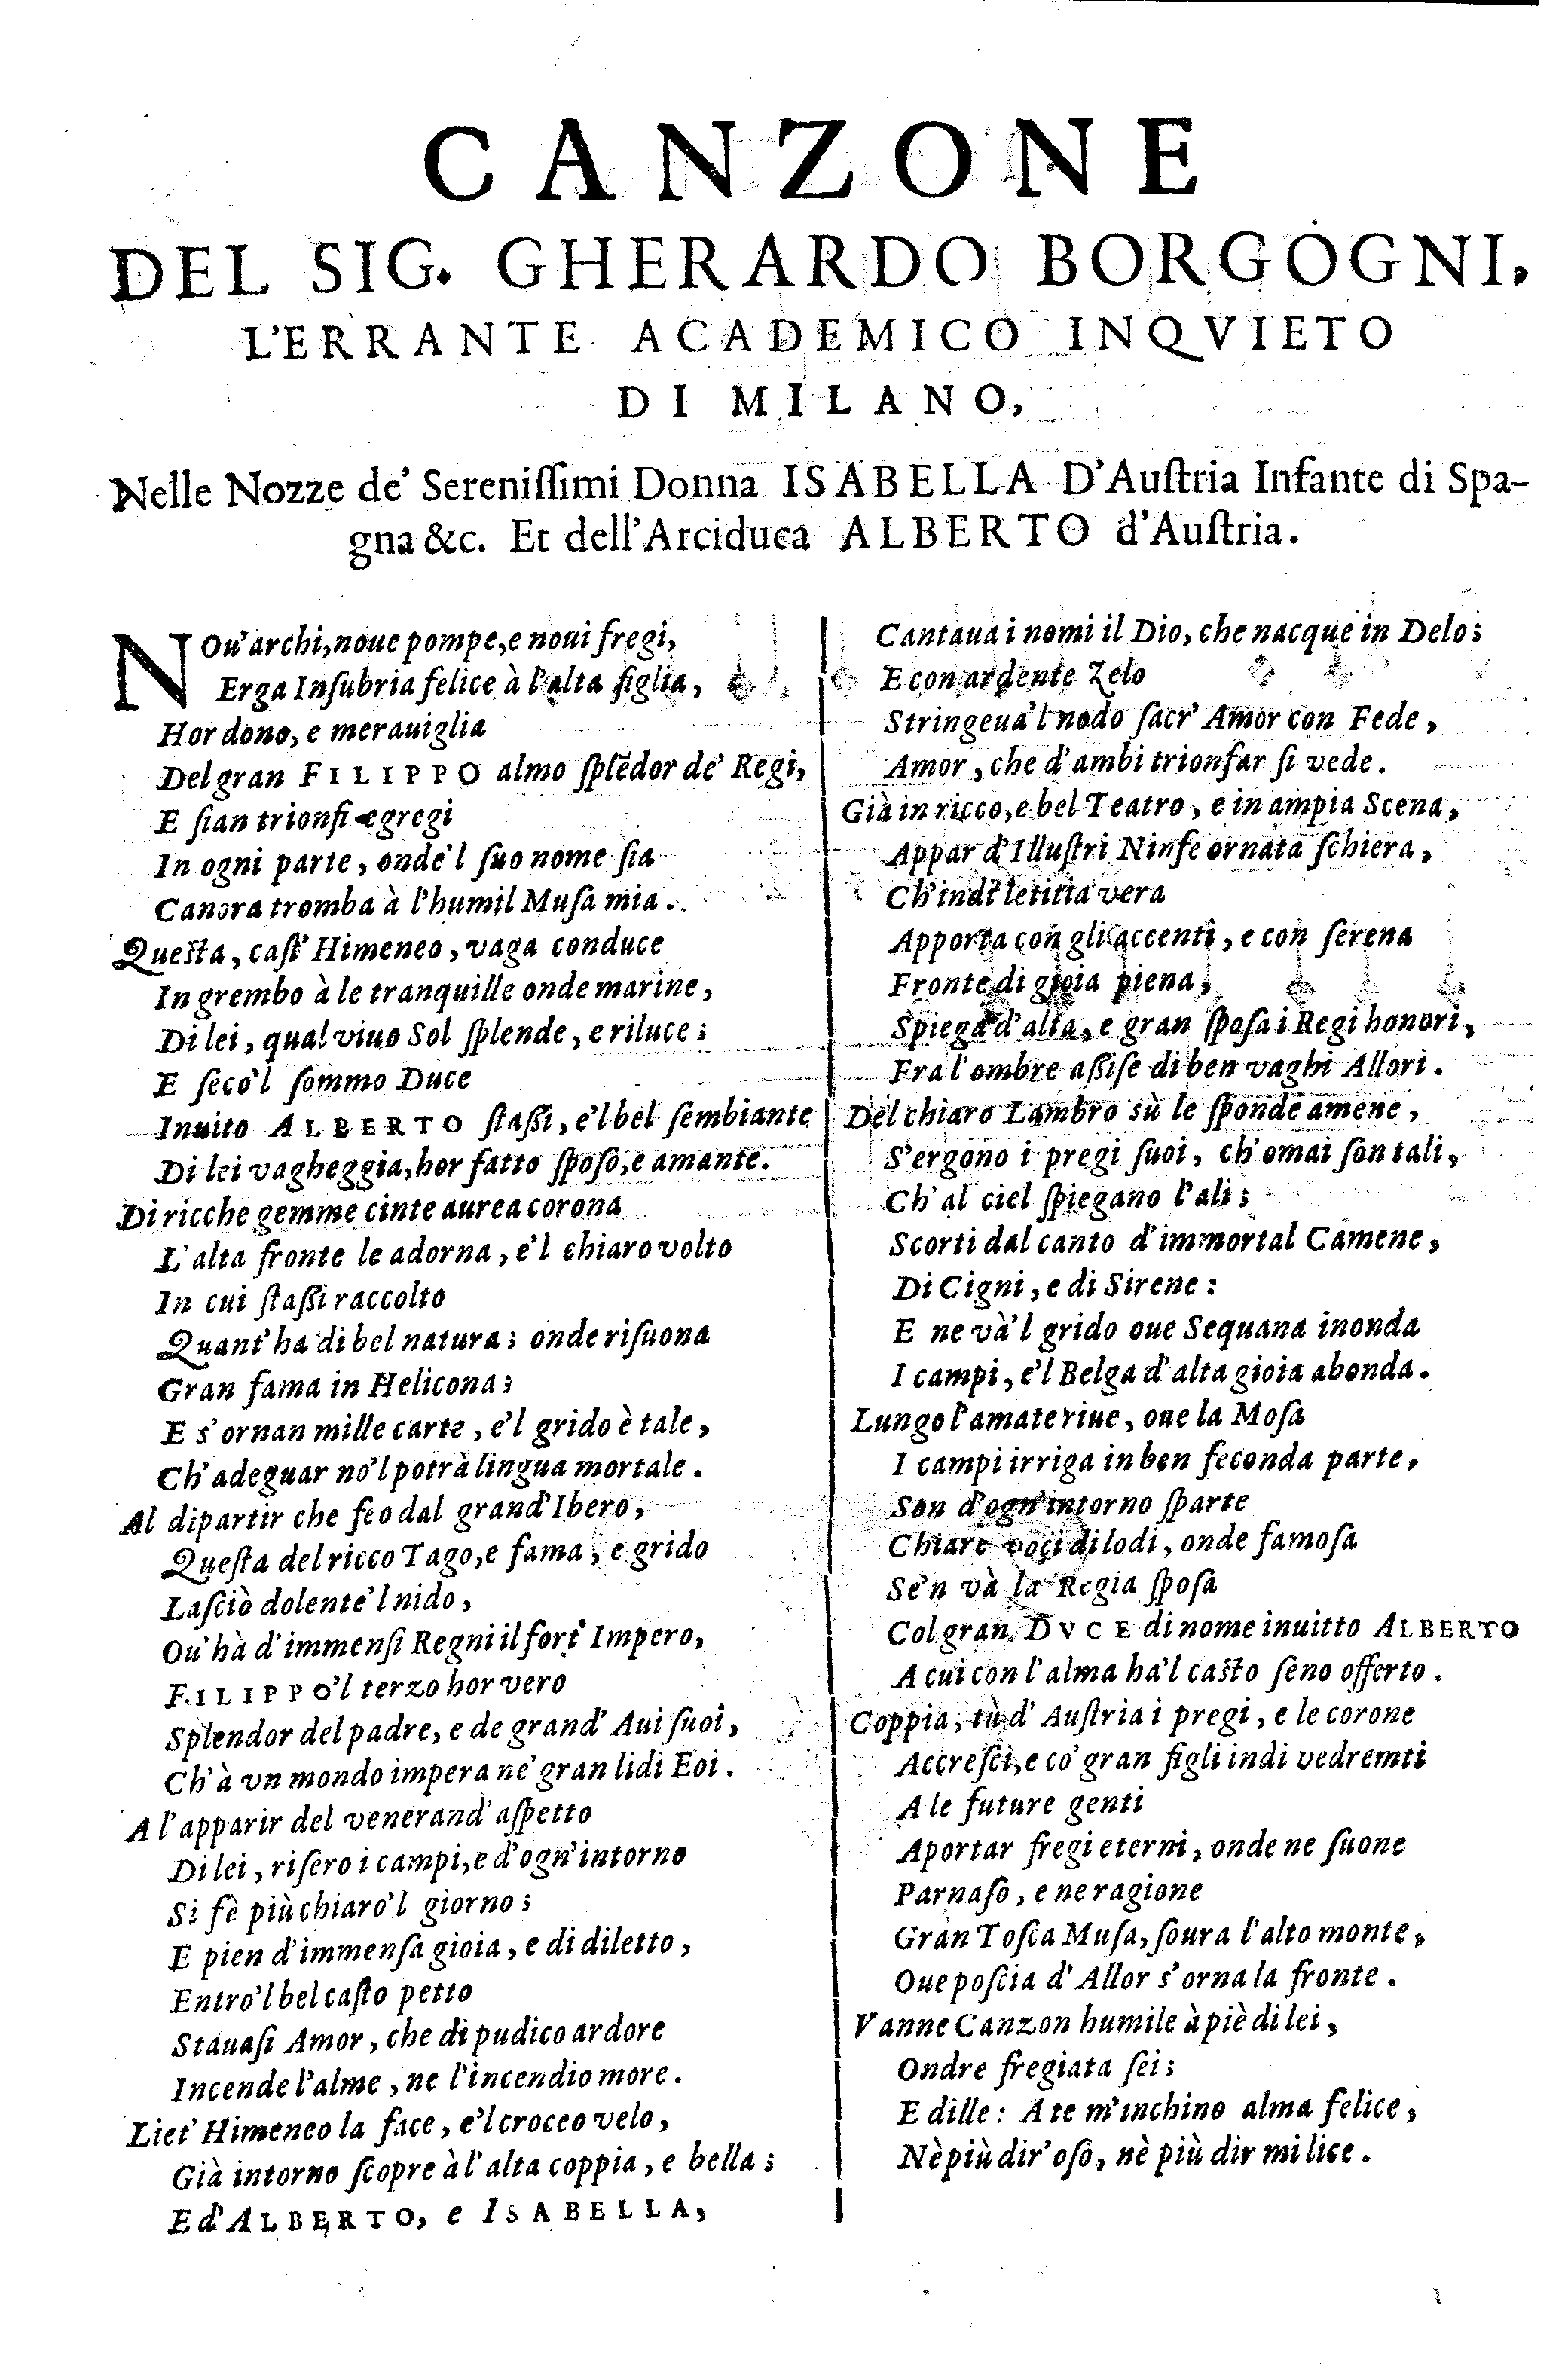 CANZONE
DEL SIG. GHERARDO BORGOGNI,
L'ERRANTE ACADEMICO INQVIETO
DI MILANO,
Nelle Nozze de' Sereniſſimi Donna ISABELLA D'Auſtria Infante di Spa-
gna &c. Et dell'Arciduca ALBERTO d'Auſtria.
NOu' archi, noue pompe, e noui fregi,
Erga Inſubria felice à l'alta figlia,
Hor dono, e merauiglia
Del gran FILIPPO almo ſplẽdor de' Regi,
E ſian trionfi egregi
In ogni parte, onde'l ſuo nome ſia
Canora tromba à l'humil Muſa mia.
Queſta, caſt' Himeneo, vaga conduce
In grembo à le tranquille onde marine,
Di lei, qual viuo Sol ſplende, e riluce;
E ſeco'l ſommo Duce
Inuito ALBERTO ſtaſſi, e'l bel ſembiante
Di lei vagheggia, hor fatto ſpoſo, e amante.
Di ricche gemme cinte aurea corona
L'alta fronte le adorna, e'l chiaro volto
In cui ſtaſſi raccolto
Quant' ha di bel natura; onde riſuona
Gran fama in Helicona;
E s'ornan mille carte, e'l grido è tale,
Ch' adeguar no'l potrà lingua mortale.
Al dipartir che feo dal grand' Ibero,
Queſta del ricco Tago, e fama, e grido
Laſciò dolente'l nido,
Ou' hà d'immenſi Regni il fort' Impero,
FILIPPO'l terzo hor vero
Splendor del padre, e de grand' Aui ſuoi,
Ch' à vn mondo impera ne' gran lidi Eoi.
A l'apparir del venerand' aſpetto
Di lei, riſero i campi, e d'ogn' intorno
Si fè più chiaro'l giorno;
E pien d'immenſa gioia, e di diletto,
Entro'l bel caſto petto
Stauaſi Amor, che di pudico ardore
Incende l'alme, ne l'incendio more.
Liet' Himeneo la face, e'l croceo velo,
Già intorno ſcopre à l'alta coppia, e bella;
E d'ALBERTO, e ISABELLA,
Cantaua i nomi il Dio, che nacque in Delo;
E con ardente Zelo
Stringeua'l nodo ſacr' Amor con Fede,
Amor, che d'ambi trionfar ſi vede.
Già in ricco, e bel Teatro, e in ampia Scena,
Appar d'Illuſtri Ninfe ornata ſchiera,
Ch'indi letitia vera
Apporta con gli accenti, e con ſerena
Fronte di gioia piena,
Spiega d'alta, e gran ſpoſa i Regi honori,
Fra l'ombre aſſiſe di ben vaghi Allori.
Del chiaro Lambro sù le ſponde amene,
S'ergono i pregi ſuoi, ch'omai ſon tali,
Ch' al ciel ſpiegano l'ali;
Scorti dal canto d'immortal Camene,
Di Cigni, e di Sirene:
E ne và'l grido oue Sequana inonda
I campi, e'l Belga d'alta gioia abonda.
Lungo l'amate riue, oue la Moſa
I campi irriga in ben feconda parte,
Son d'ogn' intorno ſparte
Chiare voci di lodi, onde famoſa
Se'n và la Regia ſpoſa
Col gran DVCE di nome inuitto ALBERTO
A cui con l'alma ha'l caſto ſeno offerto.
Coppia, tù d'Auſtria i pregi, e le corone
Accreſci, e co' gran figli indi vedremti
A le future genti
Aportar fregi eterni, onde ne ſuone
Parnaſo, e ne ragione
Gran Toſca Muſa, ſoura l'alto monte,
Oue poſcia d'Allor s'orna la fronte.
Vanne Canzon humile à piè di lei,
Ondre fregiata ſei;
E dille: A te m'inchino alma felice,
Nè più dir' oſo, nè più dir mi lice.
1